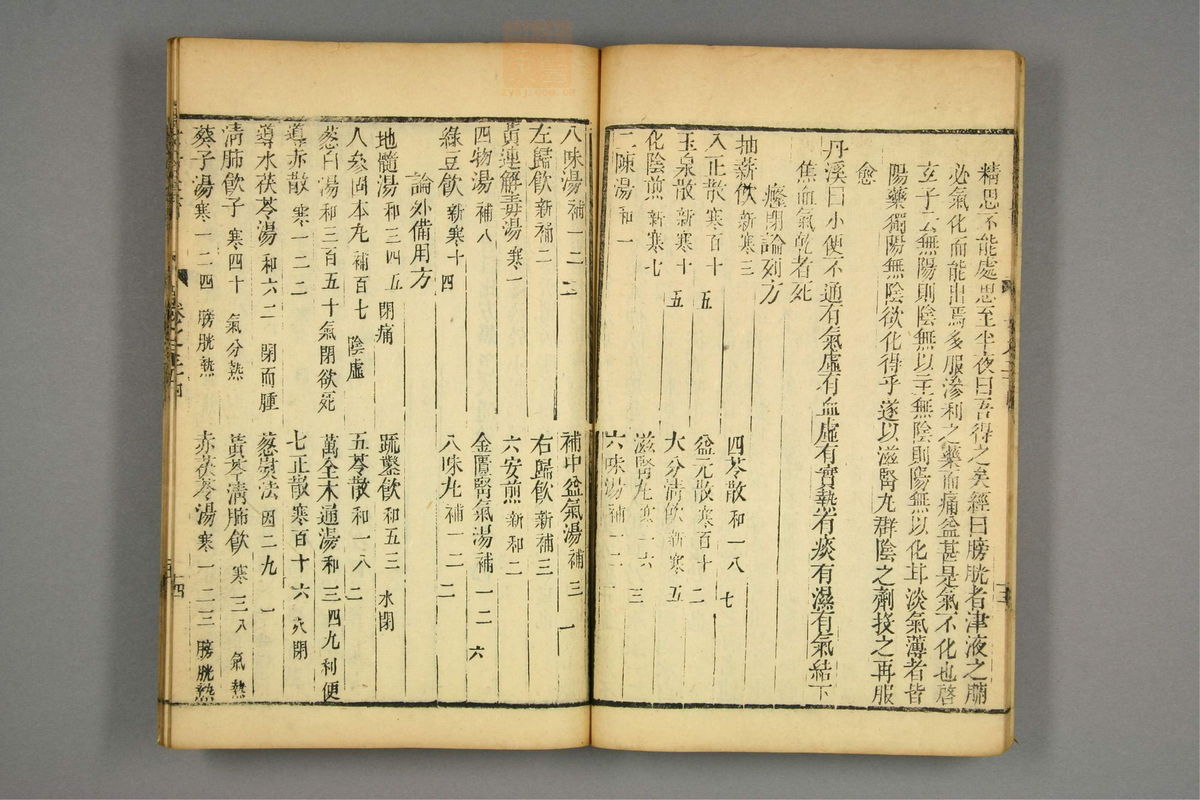 精思不能處思至半夜曰吾得之矣經曰膀胱者津液之腑
必氣化而能出焉多服滲利之藥而痛益甚是氣不化也啓
玄子云無陽則陰無以生無陰則陽無以化耳淡氣薄者皆
陽藥獨陽無陰欲化得乎遂以滋腎丸群陰之劑投之再服
愈
丹溪曰小便不通有氣虛有血虛有實熱有痰有濕有氣結下
焦血氣乾者死
癃閉論列方
抽薪飲 新寒三
四苓散 和一八七
八正散 寒百十五
益元散 寒百十二
玉泉散 新寒十五
大分清飲 新寒五
化陰煎 新寒七
滋腎丸 寒一六三
二陳湯 和一
六味湯 補一二一
八味湯 補一二二
補中益氣湯 補三一
左歸飲 新補二
右歸飲 新補三
黃連解毒湯 寒一
六安煎 新和二
四物湯 補八
金匱腎氣湯 補一二六
綠豆飲 新寒十四
八味丸 補一二二
論外備用方
地髓湯 和三四五 閉痛
疏鑿飲 和五三 水閉
人參固本丸 補百七 陰虛
五苓散 和一八二
葱白湯 和三百五十 氣閉欲死
萬全木通湯 和三四九 利便
導赤散 寒一二二
七正散 寒百十六 火閉
導水茯苓湯 和六二 閉而腫
葱熨法 因二九一
清肺飲子 寒四十 氣分熱
黃芩清肺飲 寒三八 氣熱
葵子湯 寒一二四 膀胱熱
赤茯苓湯 寒一二三 膀胱熱